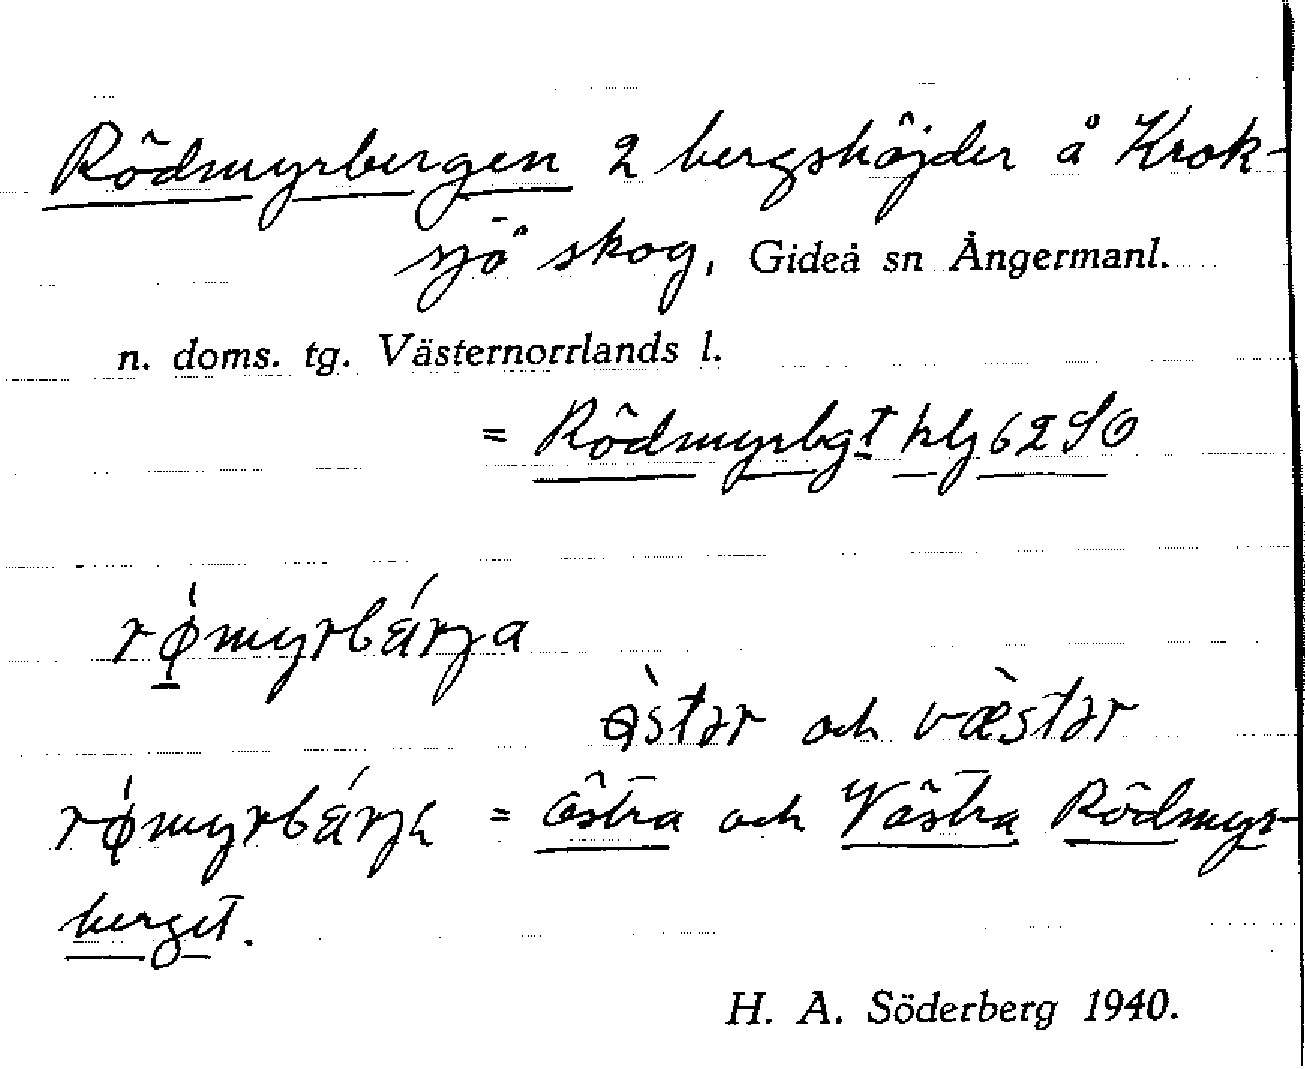 Rödmyrbergen 2 bergshöjder å Krok-
sjö skog, Gideå sn Ångermanl.
n. doms. tg. Västernorrlands l.
= Rödmyrbgt hlj 62 SO
rǿmyrbárja
östər och væ̀stər
rǿmyrbárjə = Östra och Västra Rödmyr-
berget.
H. A. Söderberg 1940.